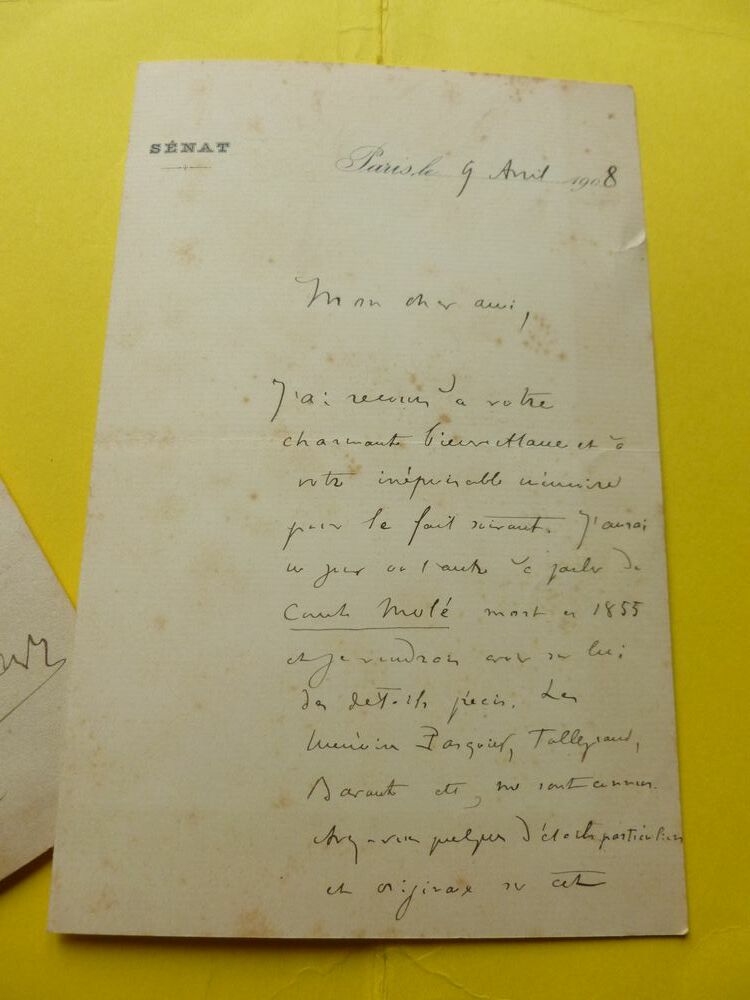 SÉNAT
Paris, le 9 Avril 1908
Mon cher ami,
J'ai recours à votre
charmante bienveillance et à
votre inépuisable mémoire
pour le fait suivant. J'aurai
un jour ou l'autre à parler du
Comte Molé mort en 1855
et je voudrais avoir sur lui
des détails précis. Les
Mémoires Pasquier, Talleyrand,
Barante etc, me sont connus.
Avez-vous quelques détails particuliers
et originaux sur cet